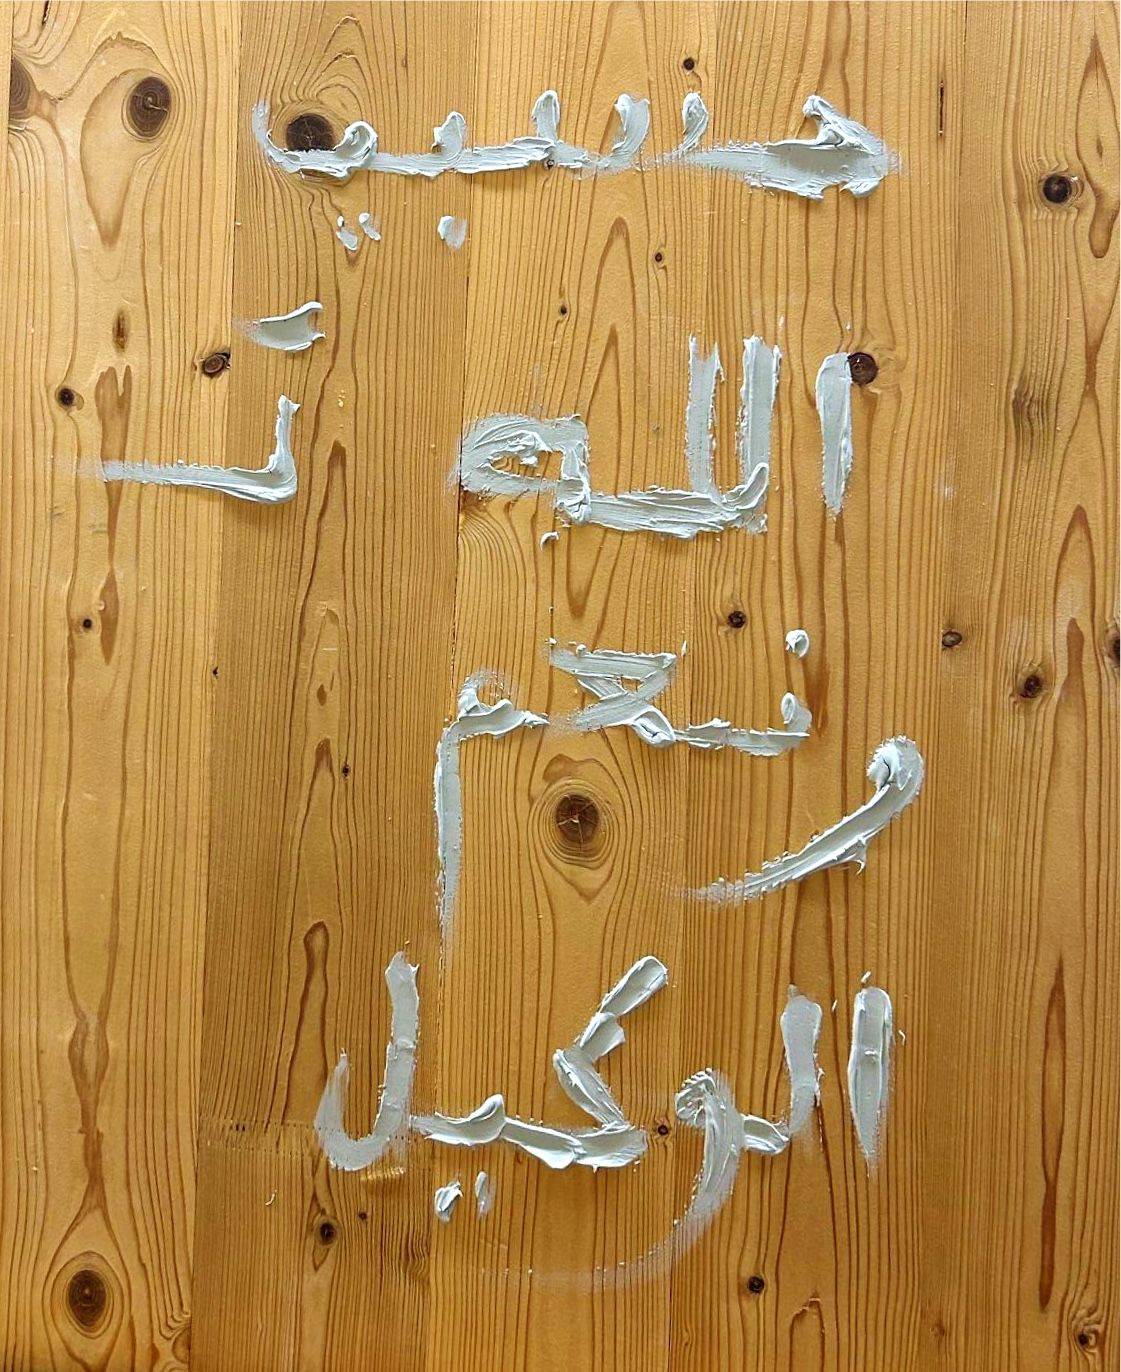 حسبي
الله
و نعم
الوكيل